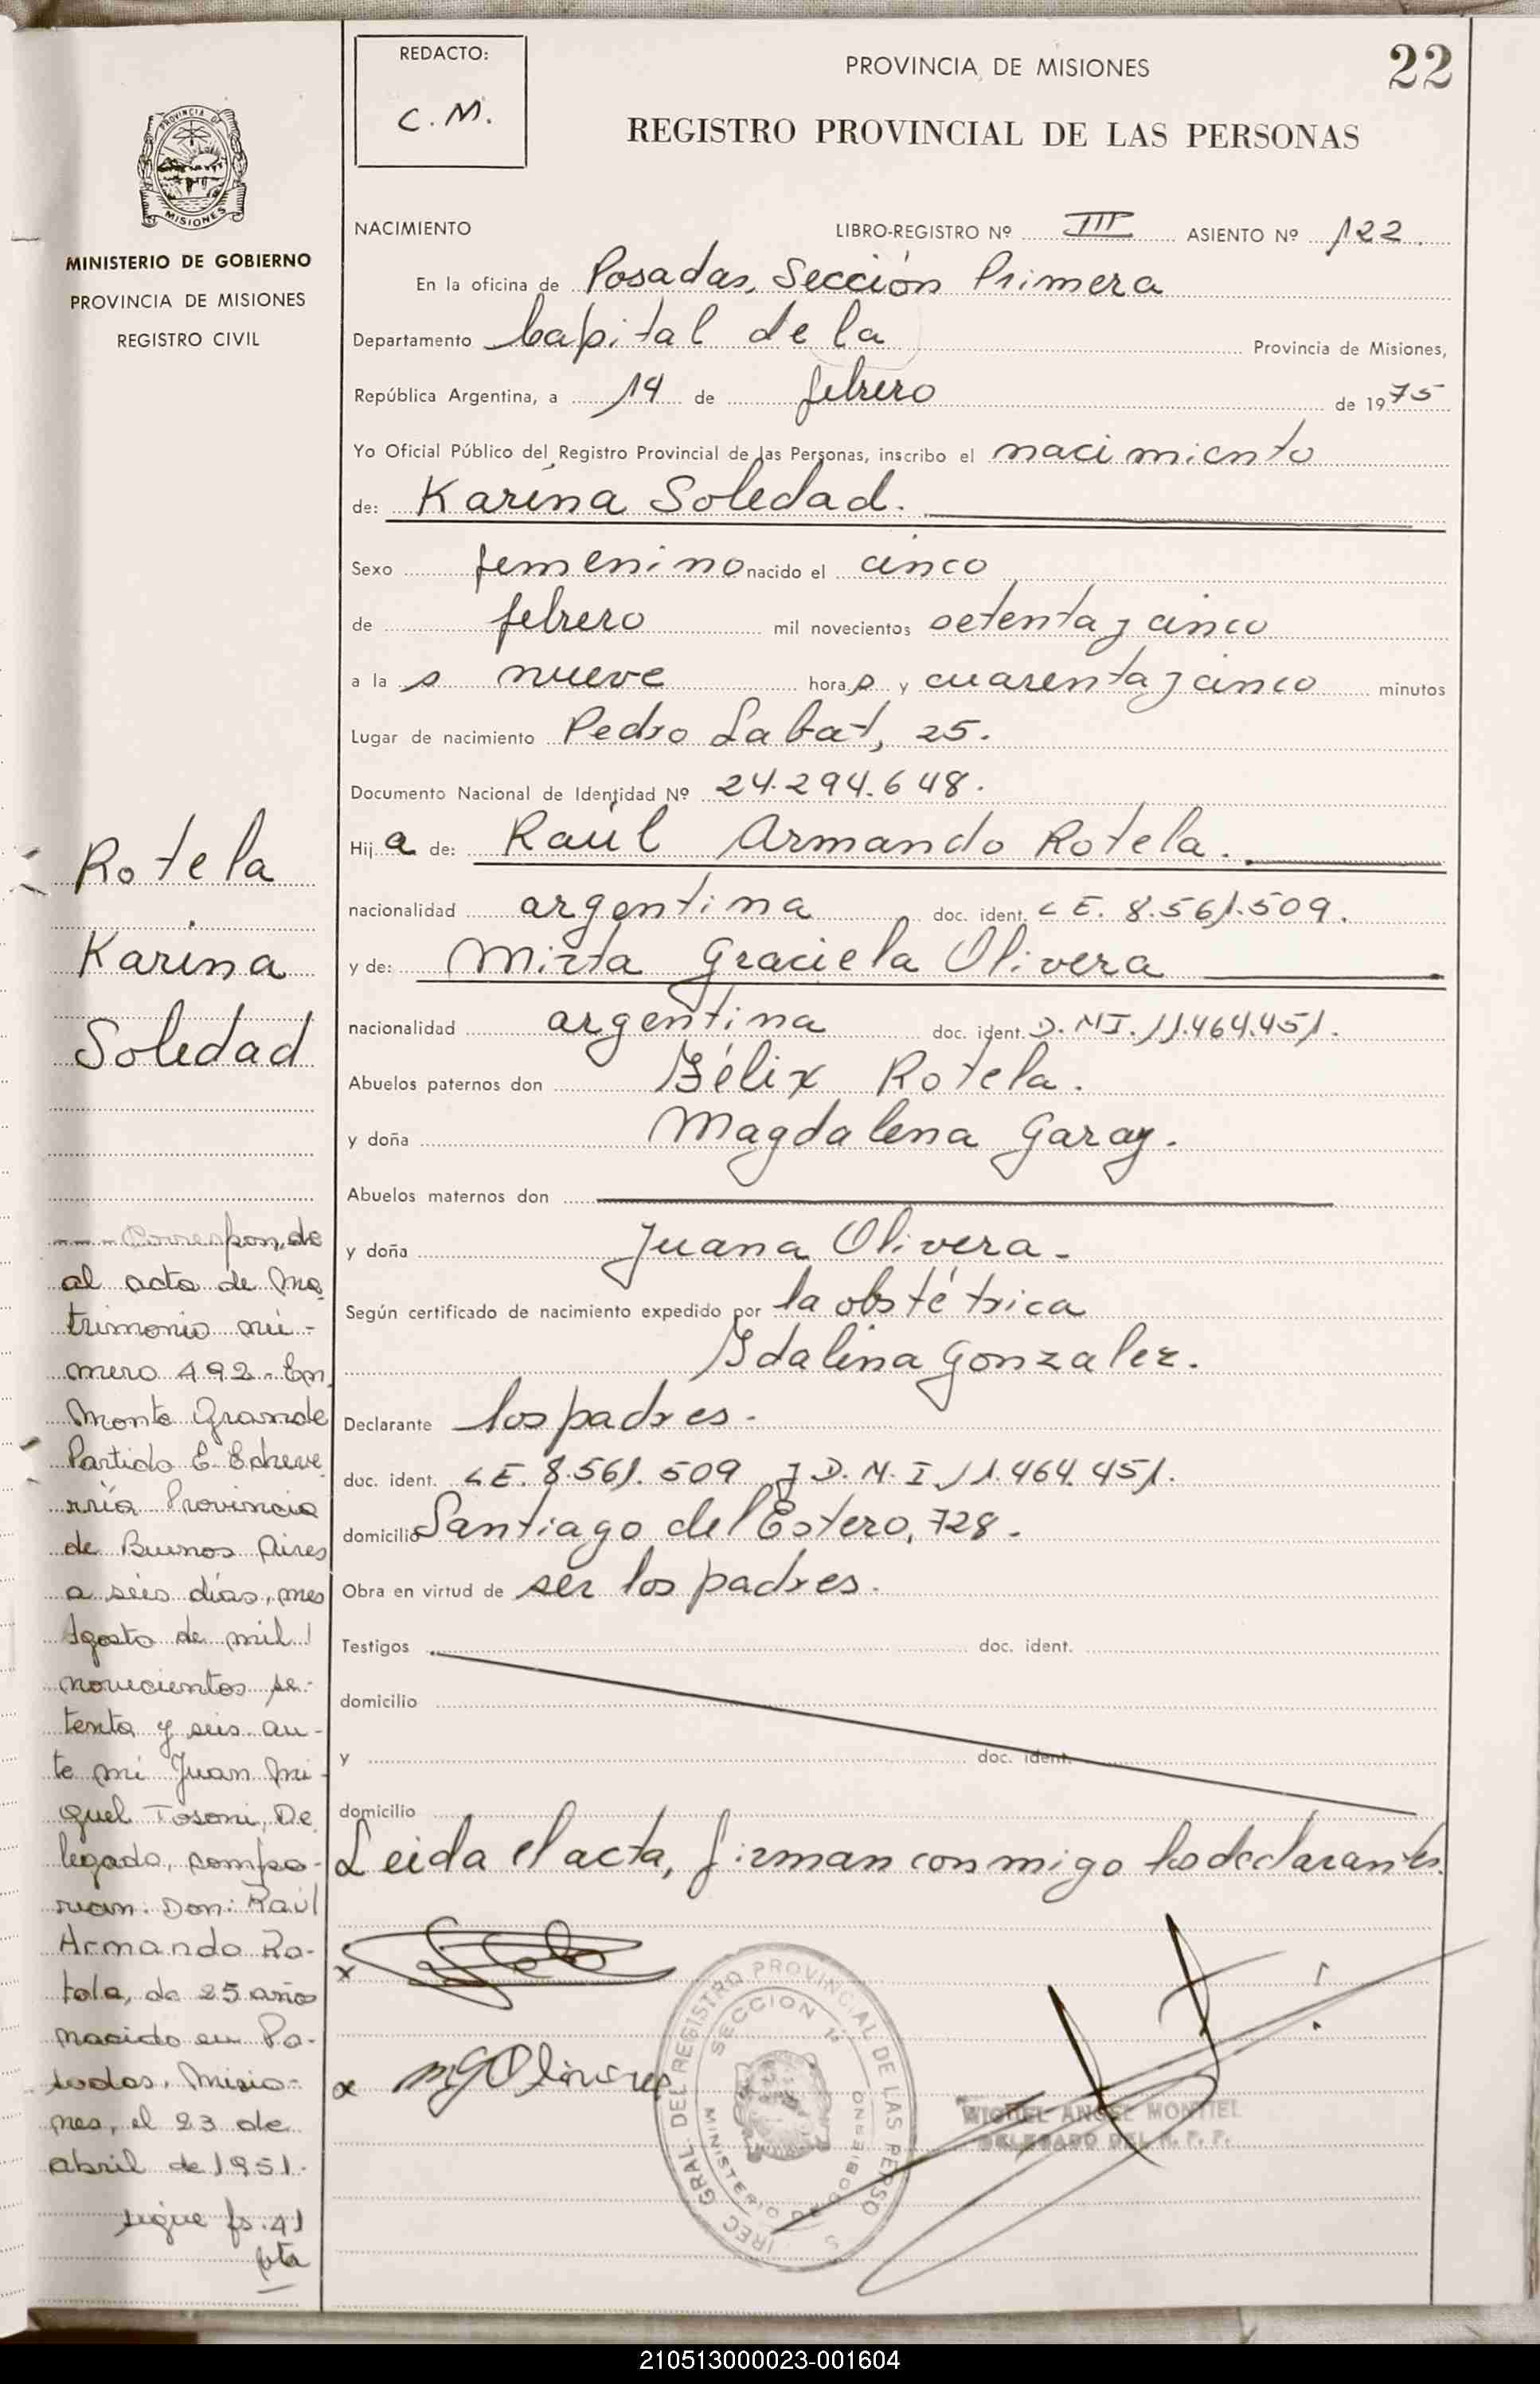 REDACTO:
C. M.
PROVINCIA DE MISIONES
22
REGISTRO PROVINCIAL DE LAS PERSONAS
PROVINCIA DE
MISIONES
MINISTERIO DE GOBIERNO
PROVINCIA DE MISIONES
REGISTRO CIVIL
NACIMIENTO LIBRO-REGISTRO Nº III ASIENTO Nº 122.
En la oficina de Posadas, Sección Primera
Departamento Capital de la Provincia de Misiones,
República Argentina, a 14 de febrero de 1975
Yo Oficial Público del Registro Provincial de las Personas, inscribo el nacimiento
de: Karina Soledad.
Sexo femenino nacido el cinco
de febrero mil novecientos setenta y cinco
a la s nueve hora s y cuarenta y cinco minutos
Lugar de nacimiento Pedro Labat, 25.
Documento Nacional de Identidad Nº 24.294.648.
Hij a de: Raúl Armando Rotela.
nacionalidad argentina doc. ident. L E. 8.561.509.
y de: Mirta Graciela Olivera
nacionalidad argentina doc. ident. D. N I. 11.464.451.
Abuelos paternos don Félix Rotela.
y doña Magdalena Garay.
Abuelos maternos don
y doña Juana Olivera.
Según certificado de nacimiento expedido por la obstétrica
Idalina Gonzalez.
Declarante los padres.
doc. ident. L E. 8.561.509 y D. N. I 11.464.451.
domicilio Santiago del Estero, 728.
Obra en virtud de ser los padres.
Testigos doc. ident.
domicilio
y doc. ident.
domicilio
Leida el acta, firman conmigo los declarantes.
Rotela
Karina
Soledad
--- Corresponde
al acta de Ma
trimonio nú-
mero 492. En
Monte Grande
Partido E. Echeve
rría Provincia
de Buenos Aires
a seis días, mes
Agosto de mil
novecientos se-
tenta y seis an-
te mi Juan Mi-
guel Tosoni, De
legado, compa-
recen: Don: Raúl
Armando Ro-
tela, de 25 años
nacido en Po-
sadas, Misio-
nes, el 23 de
abril de 1951.
sigue fs. 41
x
x MGOlivera
GRAL. DEL REGISTRO PROVINCIAL DE LAS PERSO
SECCION 1ª
MINISTERIO DE GOBIERNO
MIGUEL ANGEL MONTIEL
DELEGADO DEL R. P. P.
210513000023-001604